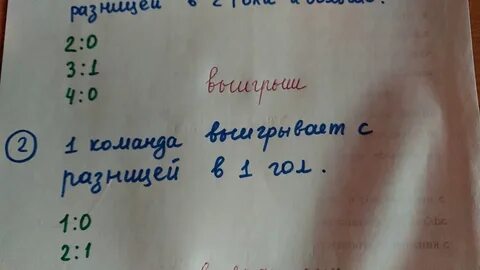 разницей в 2 гола и больше.
2:0
3:1
4:0
выигрыш
2 1 команда выигрывает с
разницей в 1 гол.
1:0
2:1